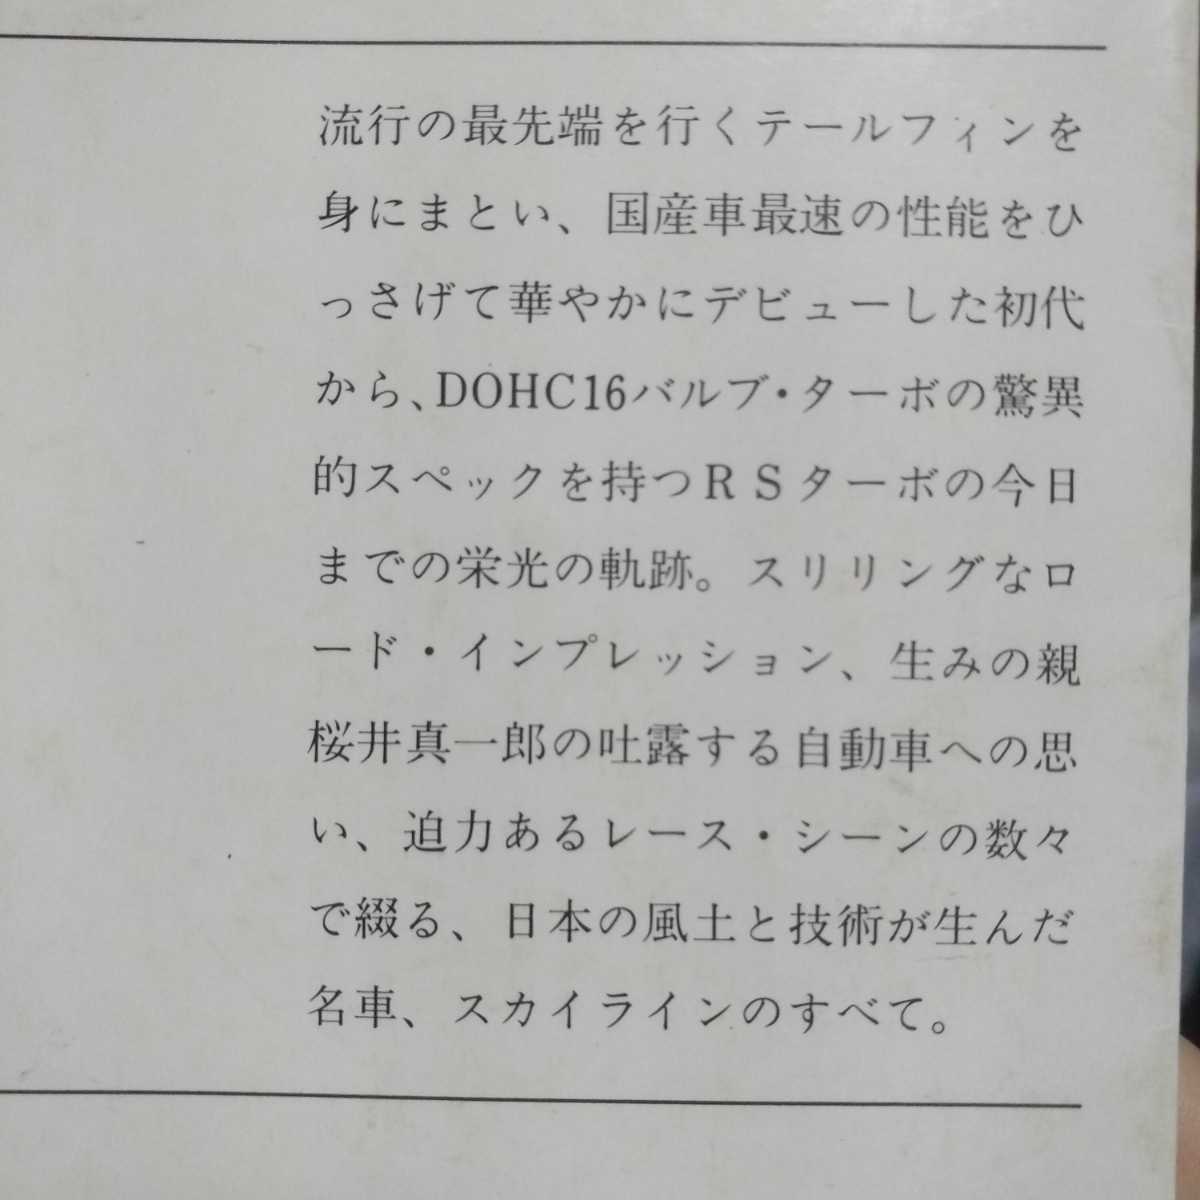 流行の最先端を行くテールフィンを
身にまとい、国産車最速の性能をひ
っさげて華やかにデビューした初代
から、DOHC16バルブ・ターボの驚異
的スペックを持つＲＳターボの今日
までの栄光の軌跡。スリリングなロ
ード・インプレッション、生みの親
桜井真一郎の吐露する自動車への思
い、迫力あるレース・シーンの数々
で綴る、日本の風土と技術が生んだ
名車、スカイラインのすべて。